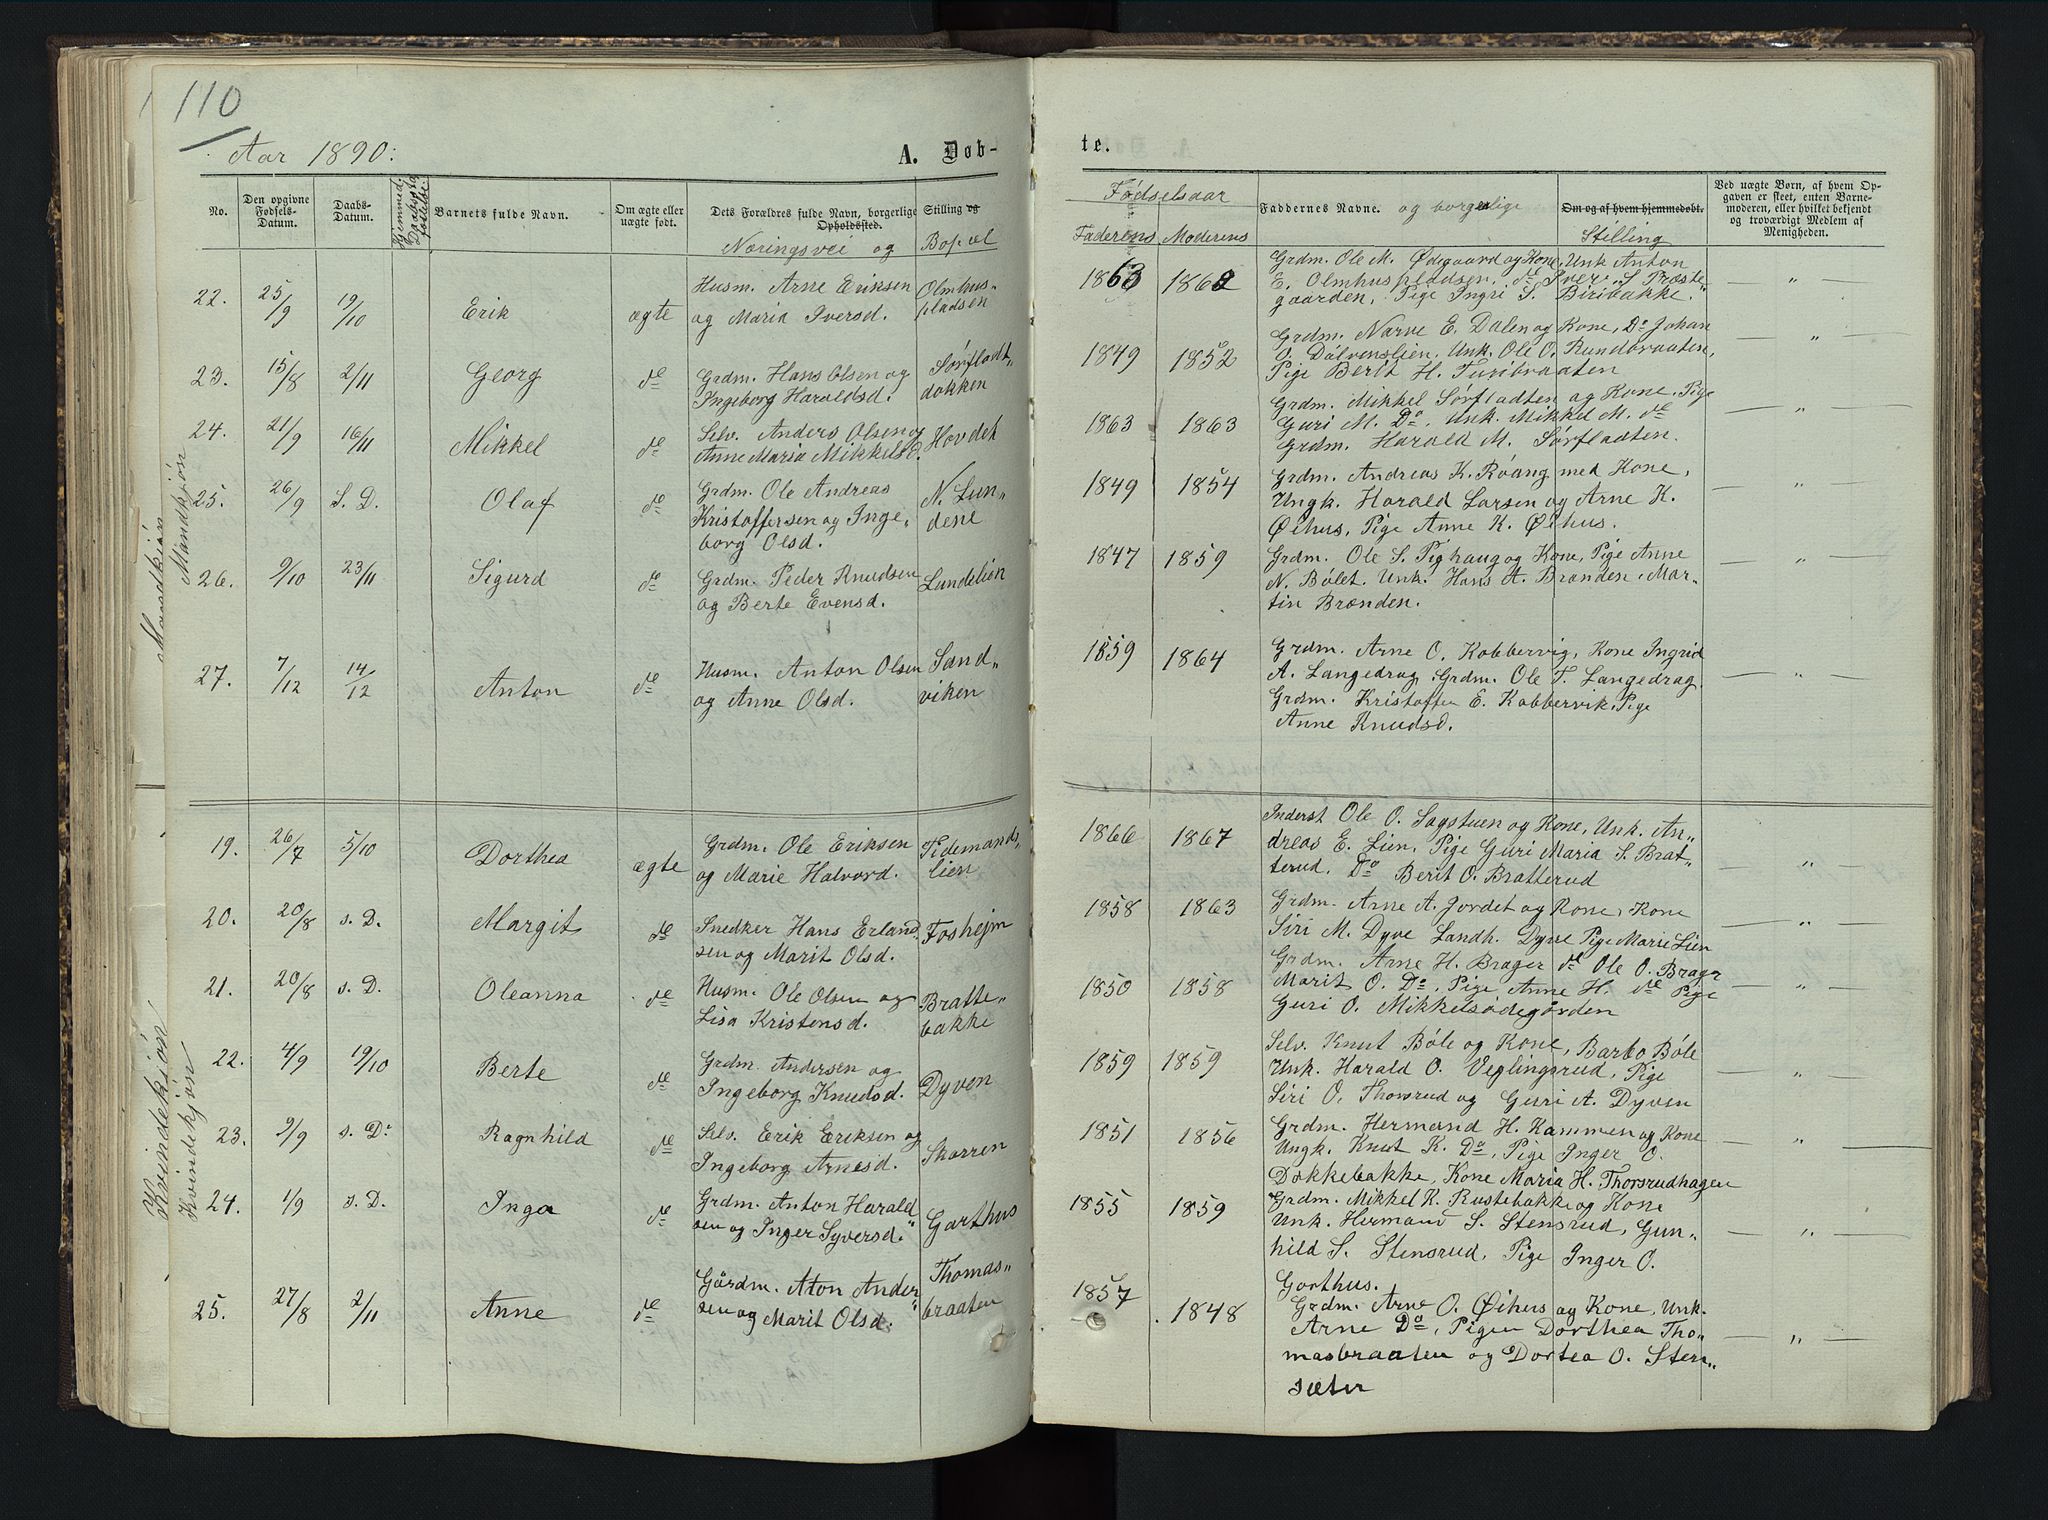 110
Aar 1890:
A. Døb-
No.
Den opgivne Fødsels-Datum.
Daabs-Datum.
Barnets fulde Navn.
Om ægte eller uægte født.
Dets Forældres fulde Navn, borgerlige Stilling og Opholdssted.
Næringsvei og Bopæl
Mandkjøn
Mandkjøn
22. 25/9 19/10 Erik ægte Husm. Arne Eriksen Olmhus-
og Maria Iversd. pladsen
23. 15/8 2/11 Georg do Grdm. Hans Olsen og Sørfladt-
Ingeborg Haraldsd. dokken
24. 21/9 16/11 Mikkel do Selv. Anders Olsen og Hovdet
Anne Maria Mikkelsd.
25. 26/9 S. D. Olaf do Grdm. Ole Andreas N. Lun-
Kristoffersen og Inge- dene
borg Olsd.
26. 9/10 23/11 Sigurd do Grdm. Peder Knudsen Lundelien
og Berte Evensd.
27. 7/12 14/12 Anton do Husm. Anton Olsen Sand-
og Anne Olsd. viken
Kvindekjøn
Kvindekjøn
19. 26/7 5/10 Dorthea ægte Grdm. Ole Eriksen Tidemands-
og Marie Halvord. lien
20. 20/8 s. D. Margit do Snedker Hans Erland- Foshejm
sen og Marit Olsd.
21. 20/8 s. D. Oleanna do Husm. Ole Olsen og Bratte-
Lisa Kristensd. bakke
22. 4/9 19/10 Berte do Grdm. Andersen og
Ingeborg Knudsd. Dyven
23. 9/9 s. D. Ragnhild do Selv. Erik Eriksen og
Ingeborg Arnesd. Skorren
24. 1/9 s. D. Inga do Grdm. Anton Harald
sen og Inger Syversd. Garthus
25. 27/8 2/11 Anne do Gårdm. Aton Ander- Thomas-
sen og Marit Olsd. braaten
te.
Fødselsaar
Faderens Moderens
Faddernes Navne. og borgerlige
Om og af hvem hjemmedøbt.
Stilling
Ved uægte Børn, af hvem Op-
gaven er skeet, enten Barne-
moderen, eller hvilket bekjendt
og troværdigt Medlem af
Menigheden.
Grdm. Ole M. Ødegaard og Kone, Unk Anton
1863 1862 E. Olmhuspladsen, do Iver S. Præste-
gaarden, Pige Ingri S. Biribakke. — " —
Grdm. Narve E. Dalen og Kone, Do Johan
1849 1852 O. Dalvenslien, Unk. Ole O. Rundbraaten, — " —
Pige Berit H. Turibraaten
Grdm. Mikkel Sørfladten og Kone, Pige
1863 1863 Guri M. Do, Unk. Mikkel M. do — " —
Grdm. Harald M. Sørfladten.
1849 1854 Grdm. Andreas K. Røang med Kone, — " —
Ungk. Harald Larsen og Arne K.
Øihus, Pige Anne K. Øihus.
1847 1859 Grdm. Ole S. Pighaug og Kone, Pige Anne — " —
N. Bølet. Unk. Hans A. Brænden, Mar-
tin Brænden.
1859 1864 Grdm. Arne O. Kobbervig, Kone Ingrid
A. Langedrag, Grdm. Ole T. Langedrag — " —
Grdm. Kristoffer E. Kobbervik, Pige
Anne Knudsd.
1866 1867 Inderst Ole O. Sagstuen og Kone, Unk. An-
dreas E. Lien, Pige Guri Maria S. Brat-
terud, Do Berit O. Bratterud — " —
1858 1863 Grdm. Arne A. Jordet og Kone, Kone
Siri M. Dyve Landh. Dyve Pige Marie Lien — " —
Grdm. Arne H. Brager do Ole O. Brager
1850 1858 Marit O. Do, Pige Anne H. do Pige — " —
Guri O. Mikkelsødegården
Selv. Knut Bøle og Kone, Barbo Bøle
1859 1859 Unk. Harald O. Veglingsrud, Pige — " —
Siri O. Thorsrud og Guri A. Dyven
1851 1856 Grdm. Hermand H. Kammen og Kone
Ungk. Knut K. Do, Pige Inger O. — " —
Dokkebakke, Kone Maria H. Thorsrudhagen
1855 1859 Grdm. Mikkel K. Rustebakke og Kone
Unk. Hermand S. Stensrud, Gun-
hild S. Stensrud, Pige Inger O. — " —
Garthus.
1857 1848 Grdm. Arne O. Øihus og Kone, Unk.
Arne Do, Pigen Dorthea Tho-
masbraaten og Dortea O. Sten- — " —
sæter